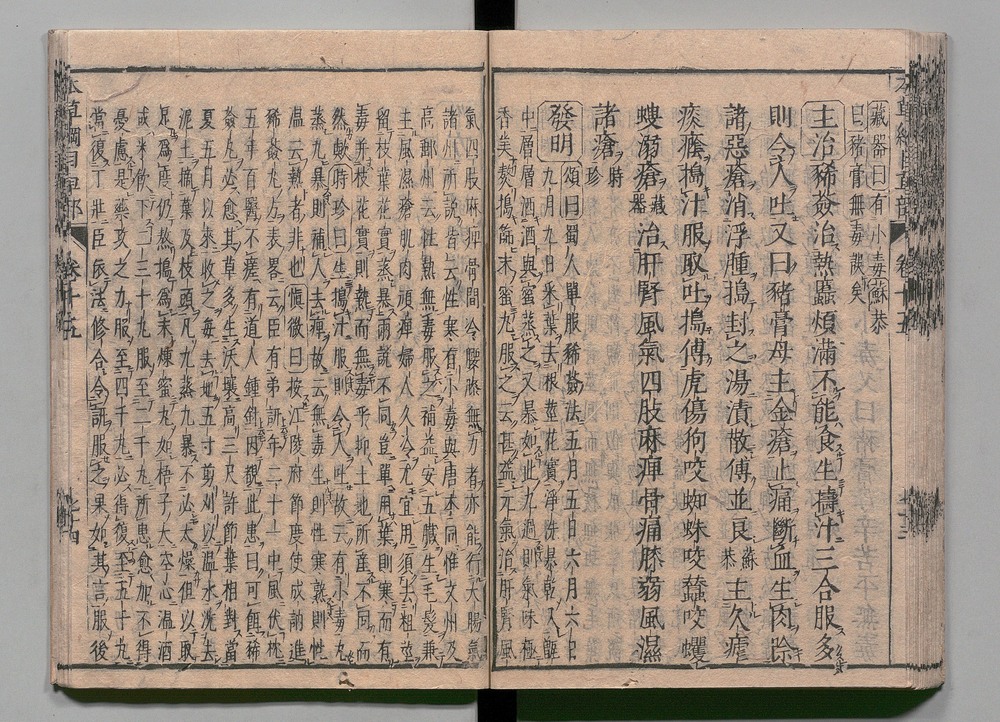 藏器曰有小毒蘇恭
曰豬膏無毒誤矣
主治豨薟治熱䘌煩滿不能食生擣汁三合服多
則令人吐又曰豬膏母主金瘡止痛斷血生肉除
諸惡瘡消浮腫搗封之湯漬散傅並良蘇恭主久瘧
痰癊搗汁服取吐搗傅虎傷狗咬蜘蛛咬蠶咬蠼
螋溺瘡藏器治肝腎風氣四肢麻痺骨痛膝弱風濕
諸瘡時珍
發明頌曰蜀人單服豨薟法五月五日六月六日
九月九日采葉去根莖花實淨洗暴乾入甑
中層層酒與蜜蒸之又暴如此九過則氣味極
香美熬搗篩末蜜丸服之云甚益元氣治肝腎風
氣四肢麻痺骨間冷腰膝無力者亦能行大腸氣
諸州所說皆云性寒有小毒與唐本同惟文州及
高郵州云性熱無毒服之補益安五臟生毛髮兼
主風濕瘡肌肉頑痺婦人久冷尤宜用須去粗莖
留枝葉花實蒸暴兩說不同豈單用葉則寒而有
毒并枝葉花實則熱而無毒乎抑土地所產不同而
然歟時珍曰生搗汁服則令人吐故云有小毒九
蒸九暴則補人去痺故云無毒生則性寒熟則性
溫云熱者非也慎微曰按江陵府節度使成訥進
豨薟丸方表畧云臣有弟訮年二十一中風伏枕
五年百醫不瘥有道人鍾針因覩此患曰可餌豨
薟丸必愈其草多生沃壤高三尺許節葉相對當
夏五月以來收之每去地五寸剪刈以溫水洗去
泥土摘葉及枝頭凡九蒸九暴不必太燥但以取
足爲度仍熬搗爲末煉蜜丸如梧子大空心溫酒
或米飲下二三十丸服至二千丸所患愈加不得
憂慮是藥攻之力服至四千丸必得復至五千丸
當復丁壯臣依法修合令訮服之果如其言服後
本草綱目草部
卷十五